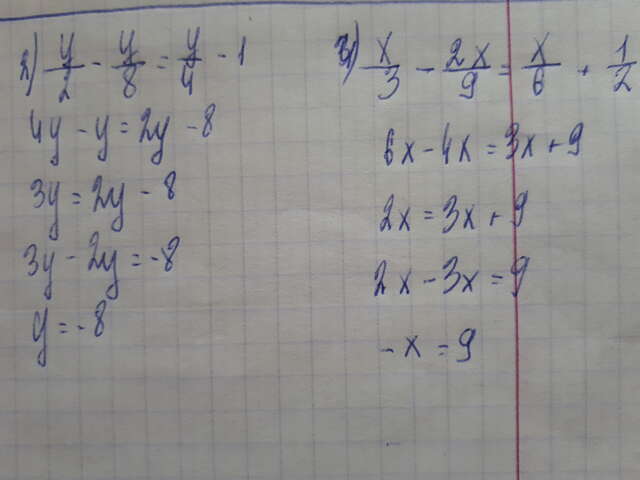 2) y/2 - y/8 = y/4 - 1
4y - y = 2y - 8
3y = 2y - 8
3y - 2y = -8
y = -8
3) x/3 - 2x/9 = x/6 + 1/2
6x - 4x = 3x + 9
2x = 3x + 9
2x - 3x = 9
-x = 9